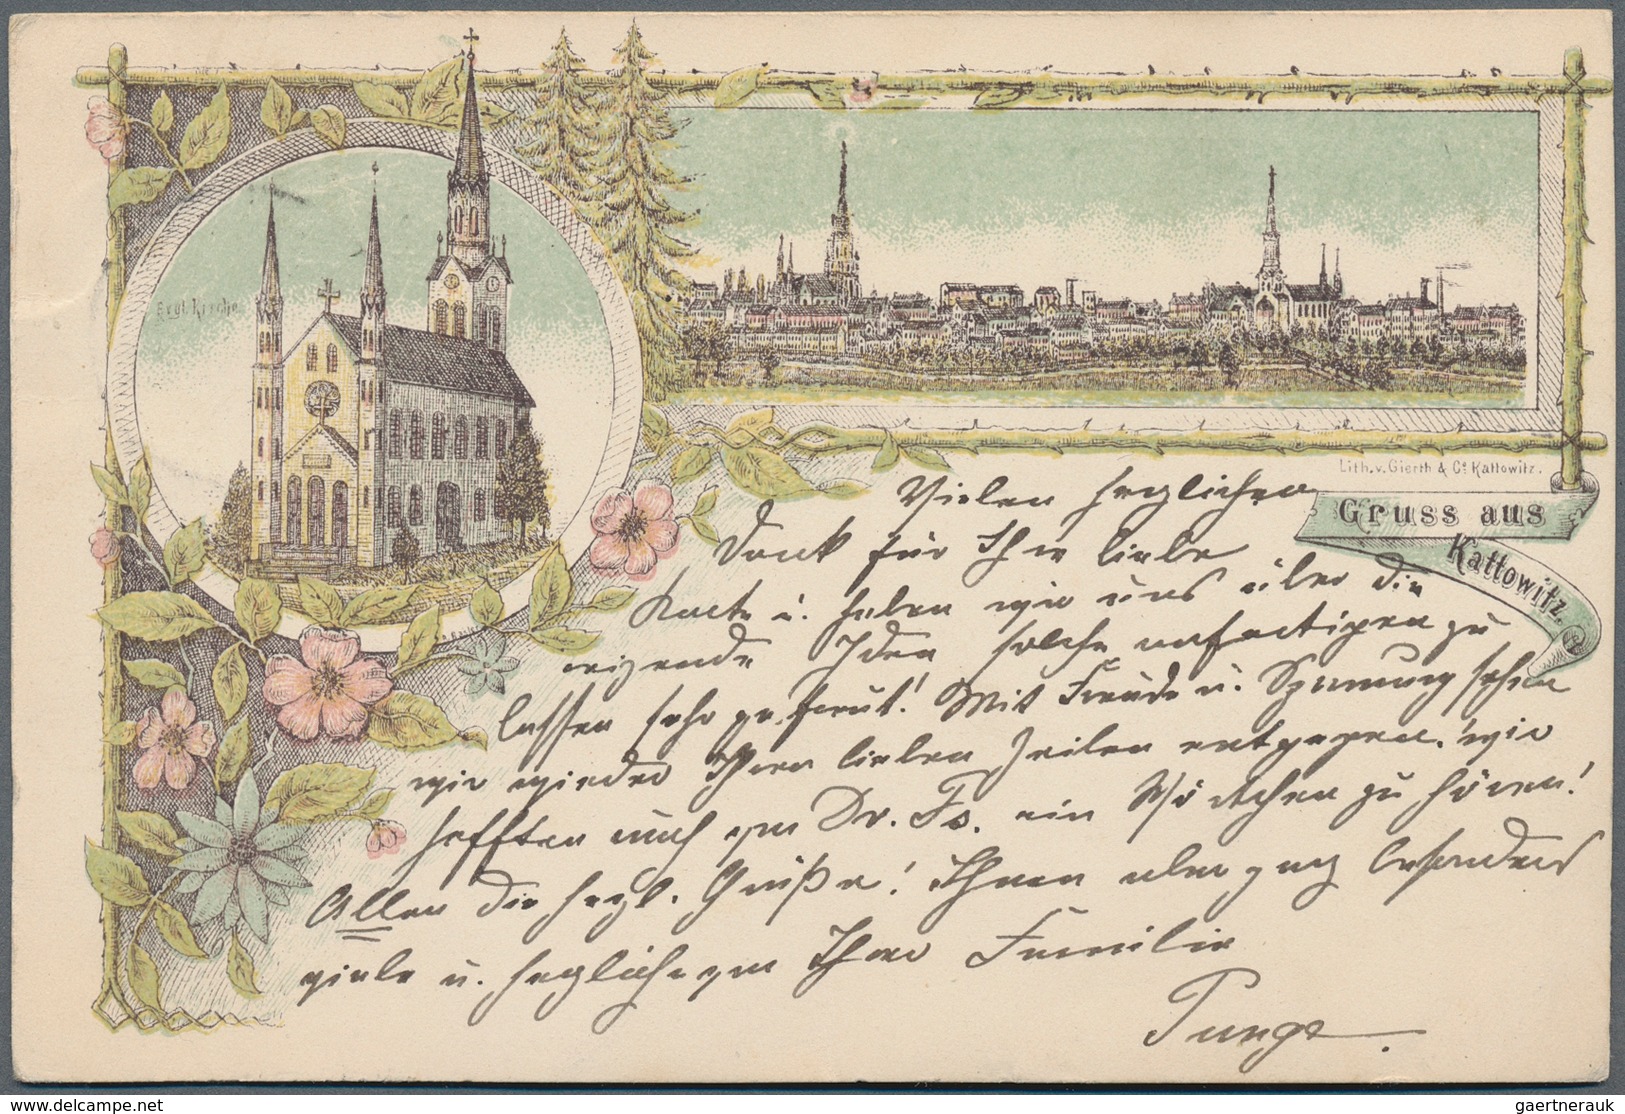 Evgl. Kirche
Lith. v. Gierth & Co Kattowitz.
Gruss aus
Kattowitz.
Vielen herzlichen
Dank für Ihre liebe
Karte u. haben wir uns über die
reizende Idee solche anfertigen zu
lassen sehr gefreut! Mit Freude u. Spannung sehen
wir wieder Ihren lieben Zeilen entgegen, wir
hofften auch von Dr. Fs. ein Wörtchen zu hören!
Allen die herzl. Grüße! Ihnen aber ganz besonders
viele u. herzliche von Ihrer Familie
delcampe.net
gaertnerauk